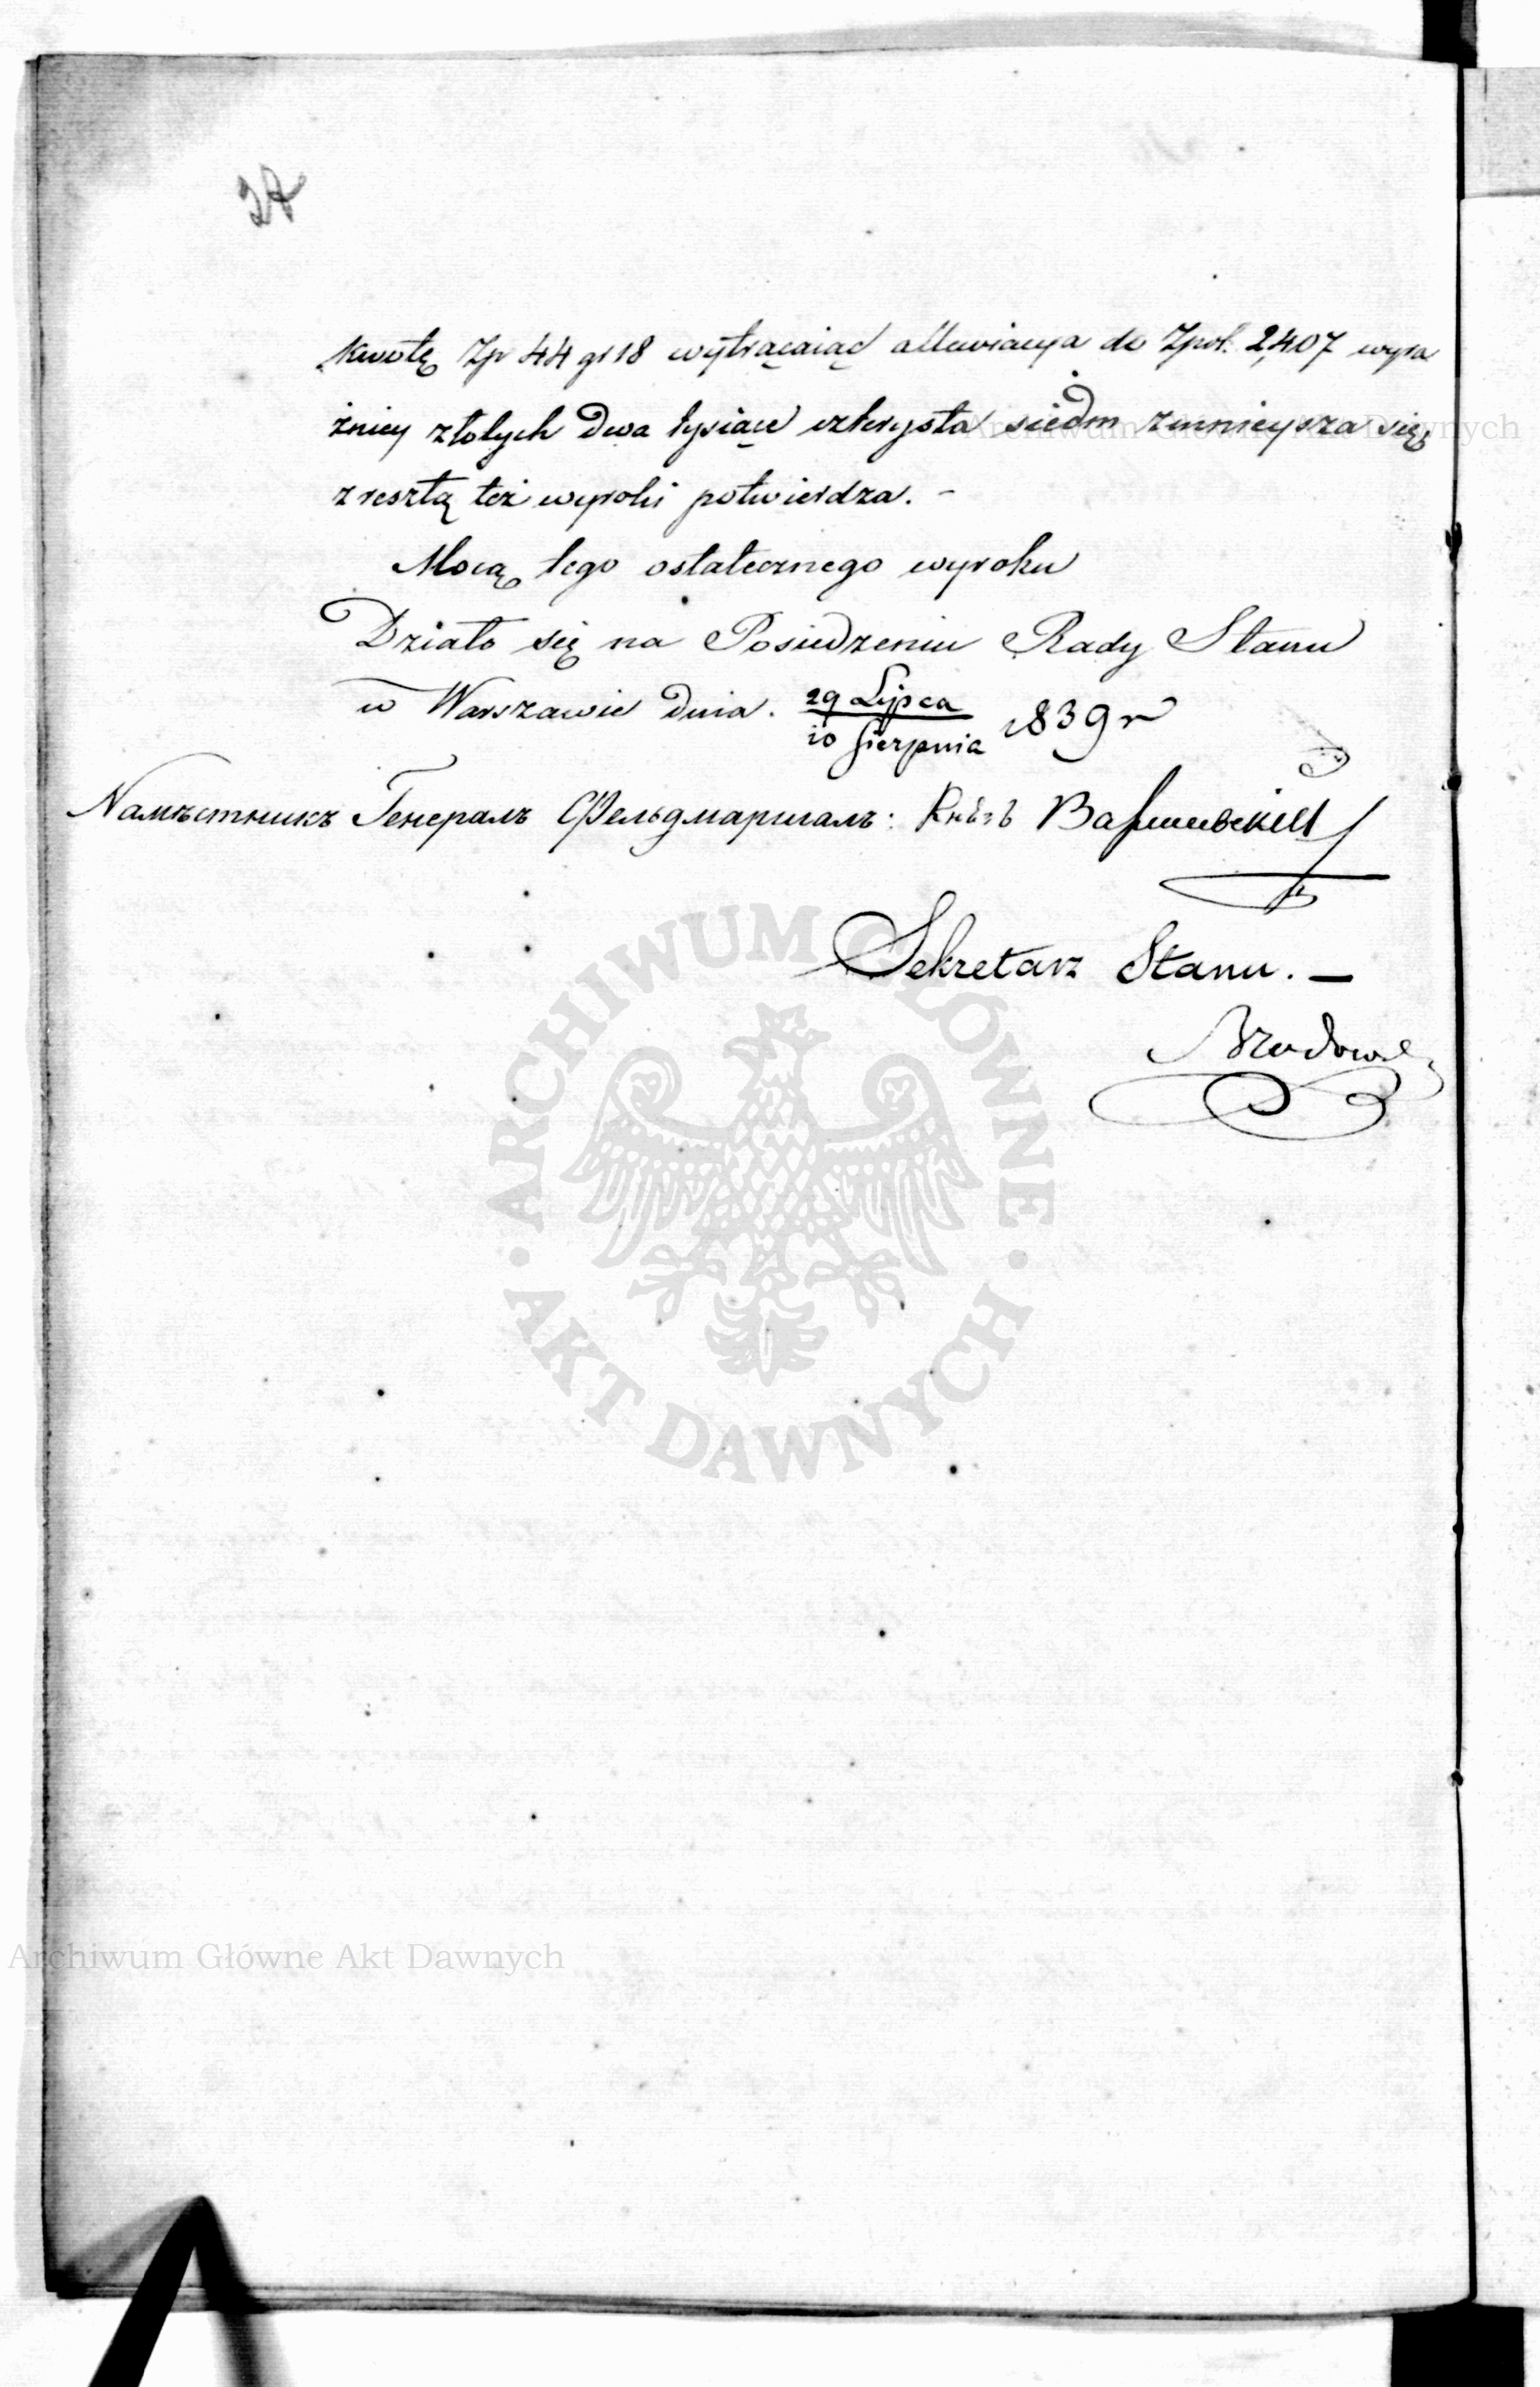 kwotę Zp 44 gr 18 wytrącaiąc allewiacya do Zpol. 2,407 wyra
źniey złotych dwa tysiące czterysta siedm zmnieysza się,
zresztą też wyroki potwierdza. -
Mocą tego ostatecznego wyroku
Działo się na Posiedzeniu Rady Stanu
w Warszawie dnia. 29 Lipca / 10 Sierpnia 1839 r
Намѣстникъ Генералъ Фельдмаршалъ: Князь Варшавскій
Sekretarz Stanu. —
ARCHIWUM GŁÓWNE
AKT DAWNYCH
Archiwum Główne Akt Dawnych
Archiwum Główne Akt Dawnych